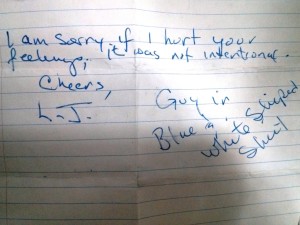 I am Sorry if I hurt your
feelings, it was not intentional.
Cheers,
L.J.
Guy in
Blue & striped
white shirt